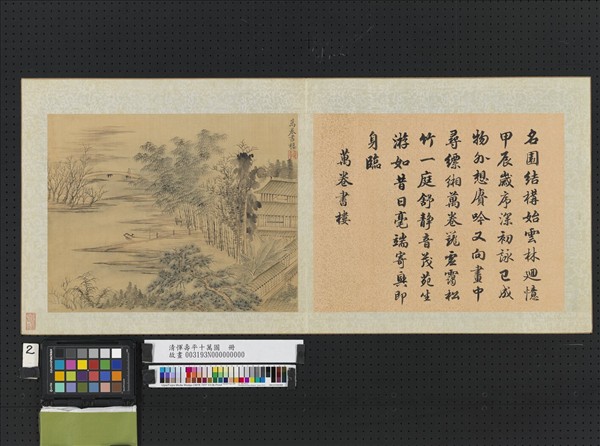 名園結構始雲林迴憶
甲辰歲序深初詠已成
物外想賡吟又向畫中
尋縹緗萬卷籠雲靄松
竹一庭舒靜音茂苑坐
游如昔日毫端寄興即
身臨
萬卷書樓
萬卷書樓
2
清惲壽平十萬圖 冊
故畫 003193N000000000